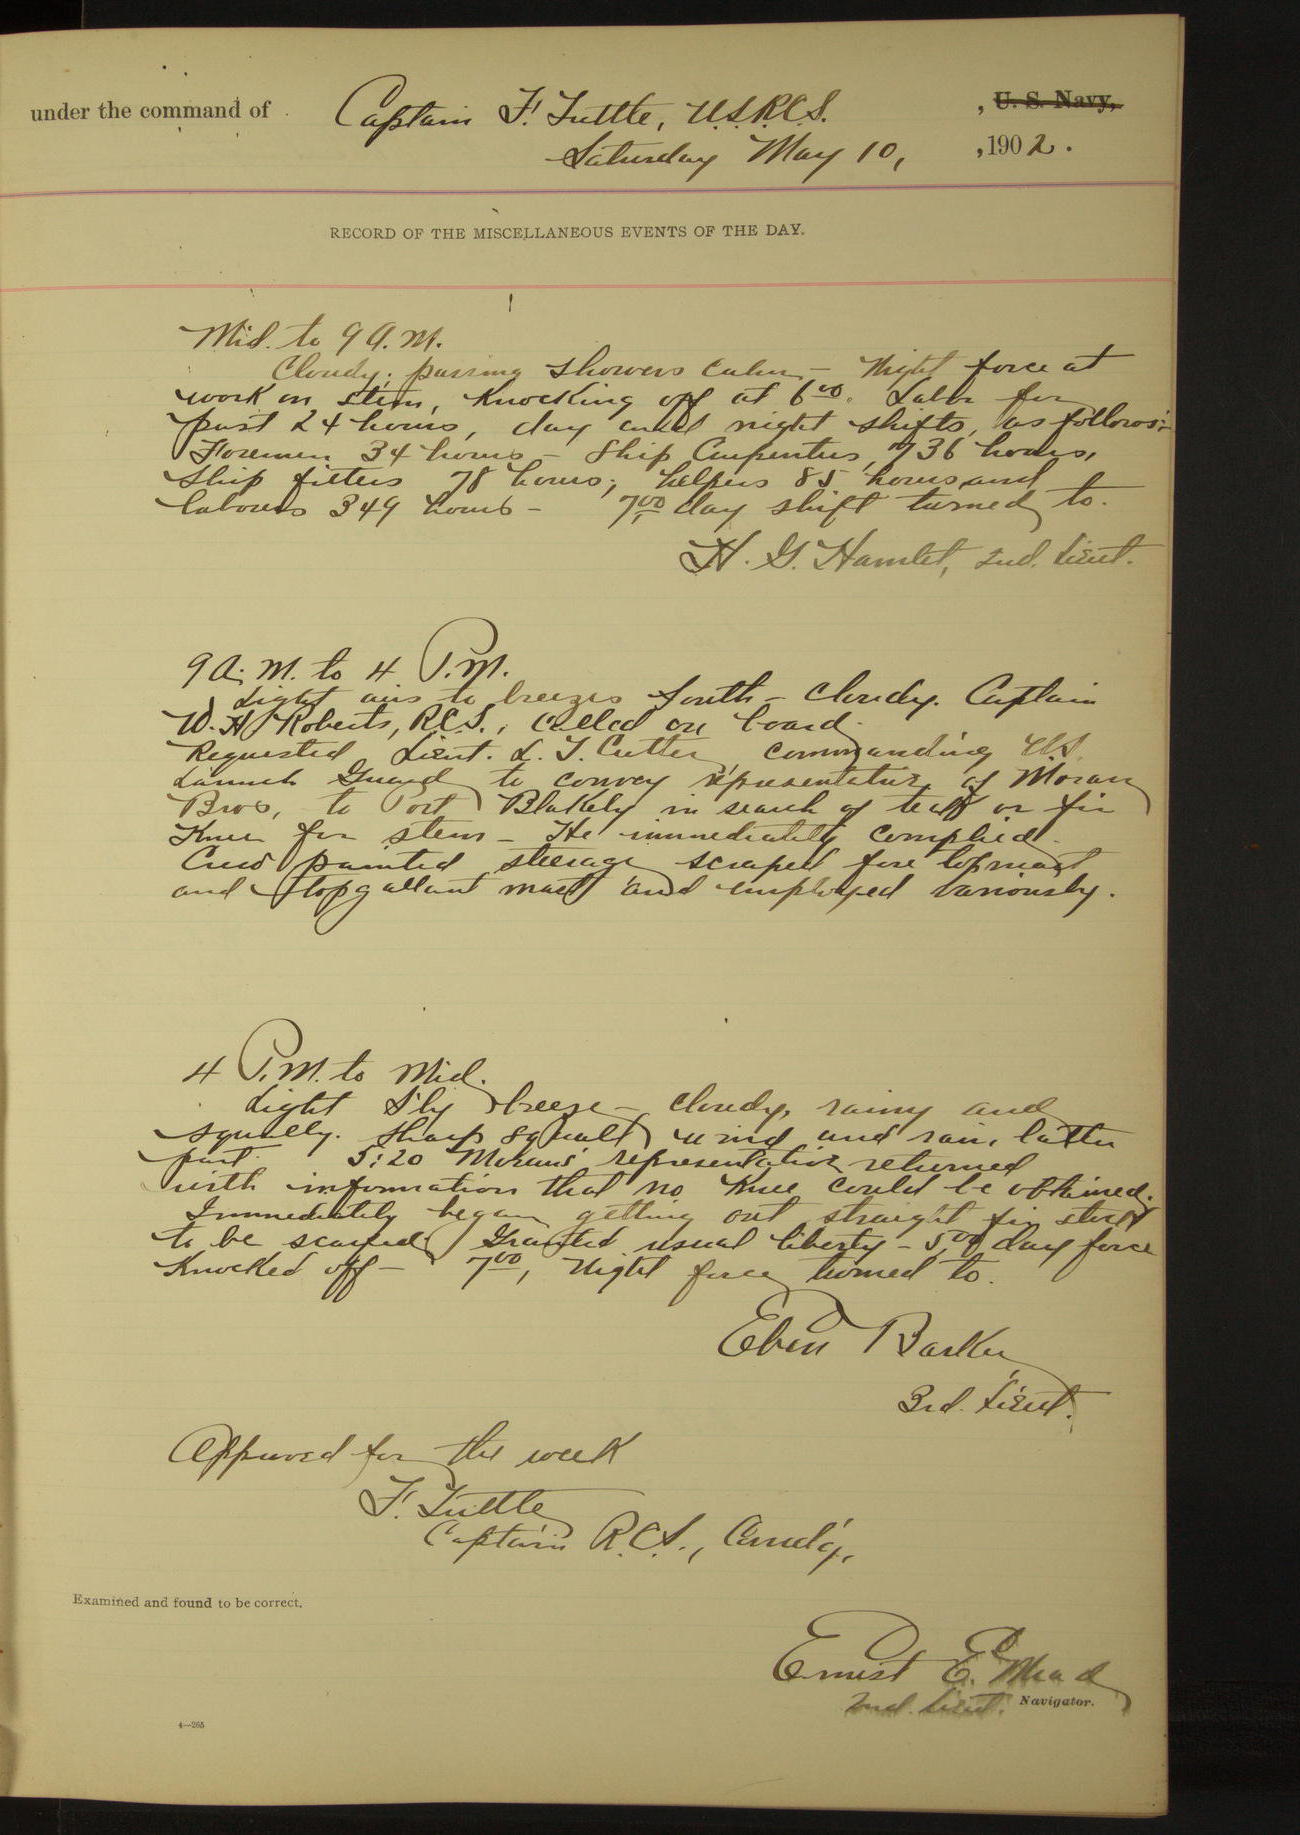 under the command of Captain F. Tuttle, U.S.R.C.S. , U. S. Navy,
Saturday May 10, , 1902.
RECORD OF THE MISCELLANEOUS EVENTS OF THE DAY.
Mid. to 9 A.M.
Cloudy, passing showers calm – Night force at
work on stem, knocking off at 6 00. Labor for
past 24 hours, day and night shifts, as follows:-
Foremen 34 hours – Ship Carpenters 736 hours,
Ship fitters 78 hours; helpers 85 hours and
laborers 349 hours – 7 00 day shift turned to.
H. G. Hamlet, 2nd. Lieut.
9 A.M. to 4 P.M.
Light airs to breezes South – Cloudy. Captain
W. H. Roberts, R.C.S., called on board.
Requested Lieut. L. T. Cutter commanding U.S.
Launch Guard to convey representative of Moran
Bros, to Port Blakely in search of teak or fir
Knee for stem – He immediately complied.
Crew painted steerage scraped fore topmast
and topgallant mast and employed variously.
4 P.M. to Mid.
Light S'ly breeze – cloudy, rainy and
squally. Sharp squall wind and rain, latter
part. 5:20 Morans' representative returned
with information that no Knee could be obtained.
Immediately began getting out straight fir stick
to be scarfed. Granted usual liberty – 5 00 day force
Knocked off – 7 00, Night force turned to.
Eben Barker
3rd. Lieut.
Approved for the week
F. Tuttle
Captain R.C.S., Comd'g.
Examined and found to be correct.
Ernest E. Mead
2nd. Lieut. Navigator.
4—265